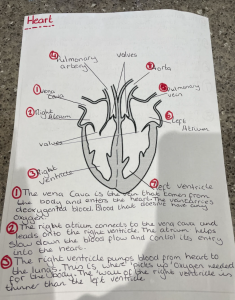 Heart
④ Pulmonary artery
valves
⑤ Aorta
① Vena cava
⑥ Pulmonary vein
② Right Atrium
⑥ Left Atrium
valves
③ Right ventricle
⑦ left ventricle
① The vena cava is the vein that comes from
the body and enters the heart. The vana carries
deoxygenated blood. Blood that doesnt have any
Oxygen.
② The right atrium connects to the vena cava and
leads onto the right ventricle. The atrium helps
slow down the blood flow and control its entry
into the heart.
③ The right ventricle pumps blood from heart to
the lungs. This is where picks up Oxygen needed
for the body. The wall of the right ventricle is
thinner than the left ventricle.